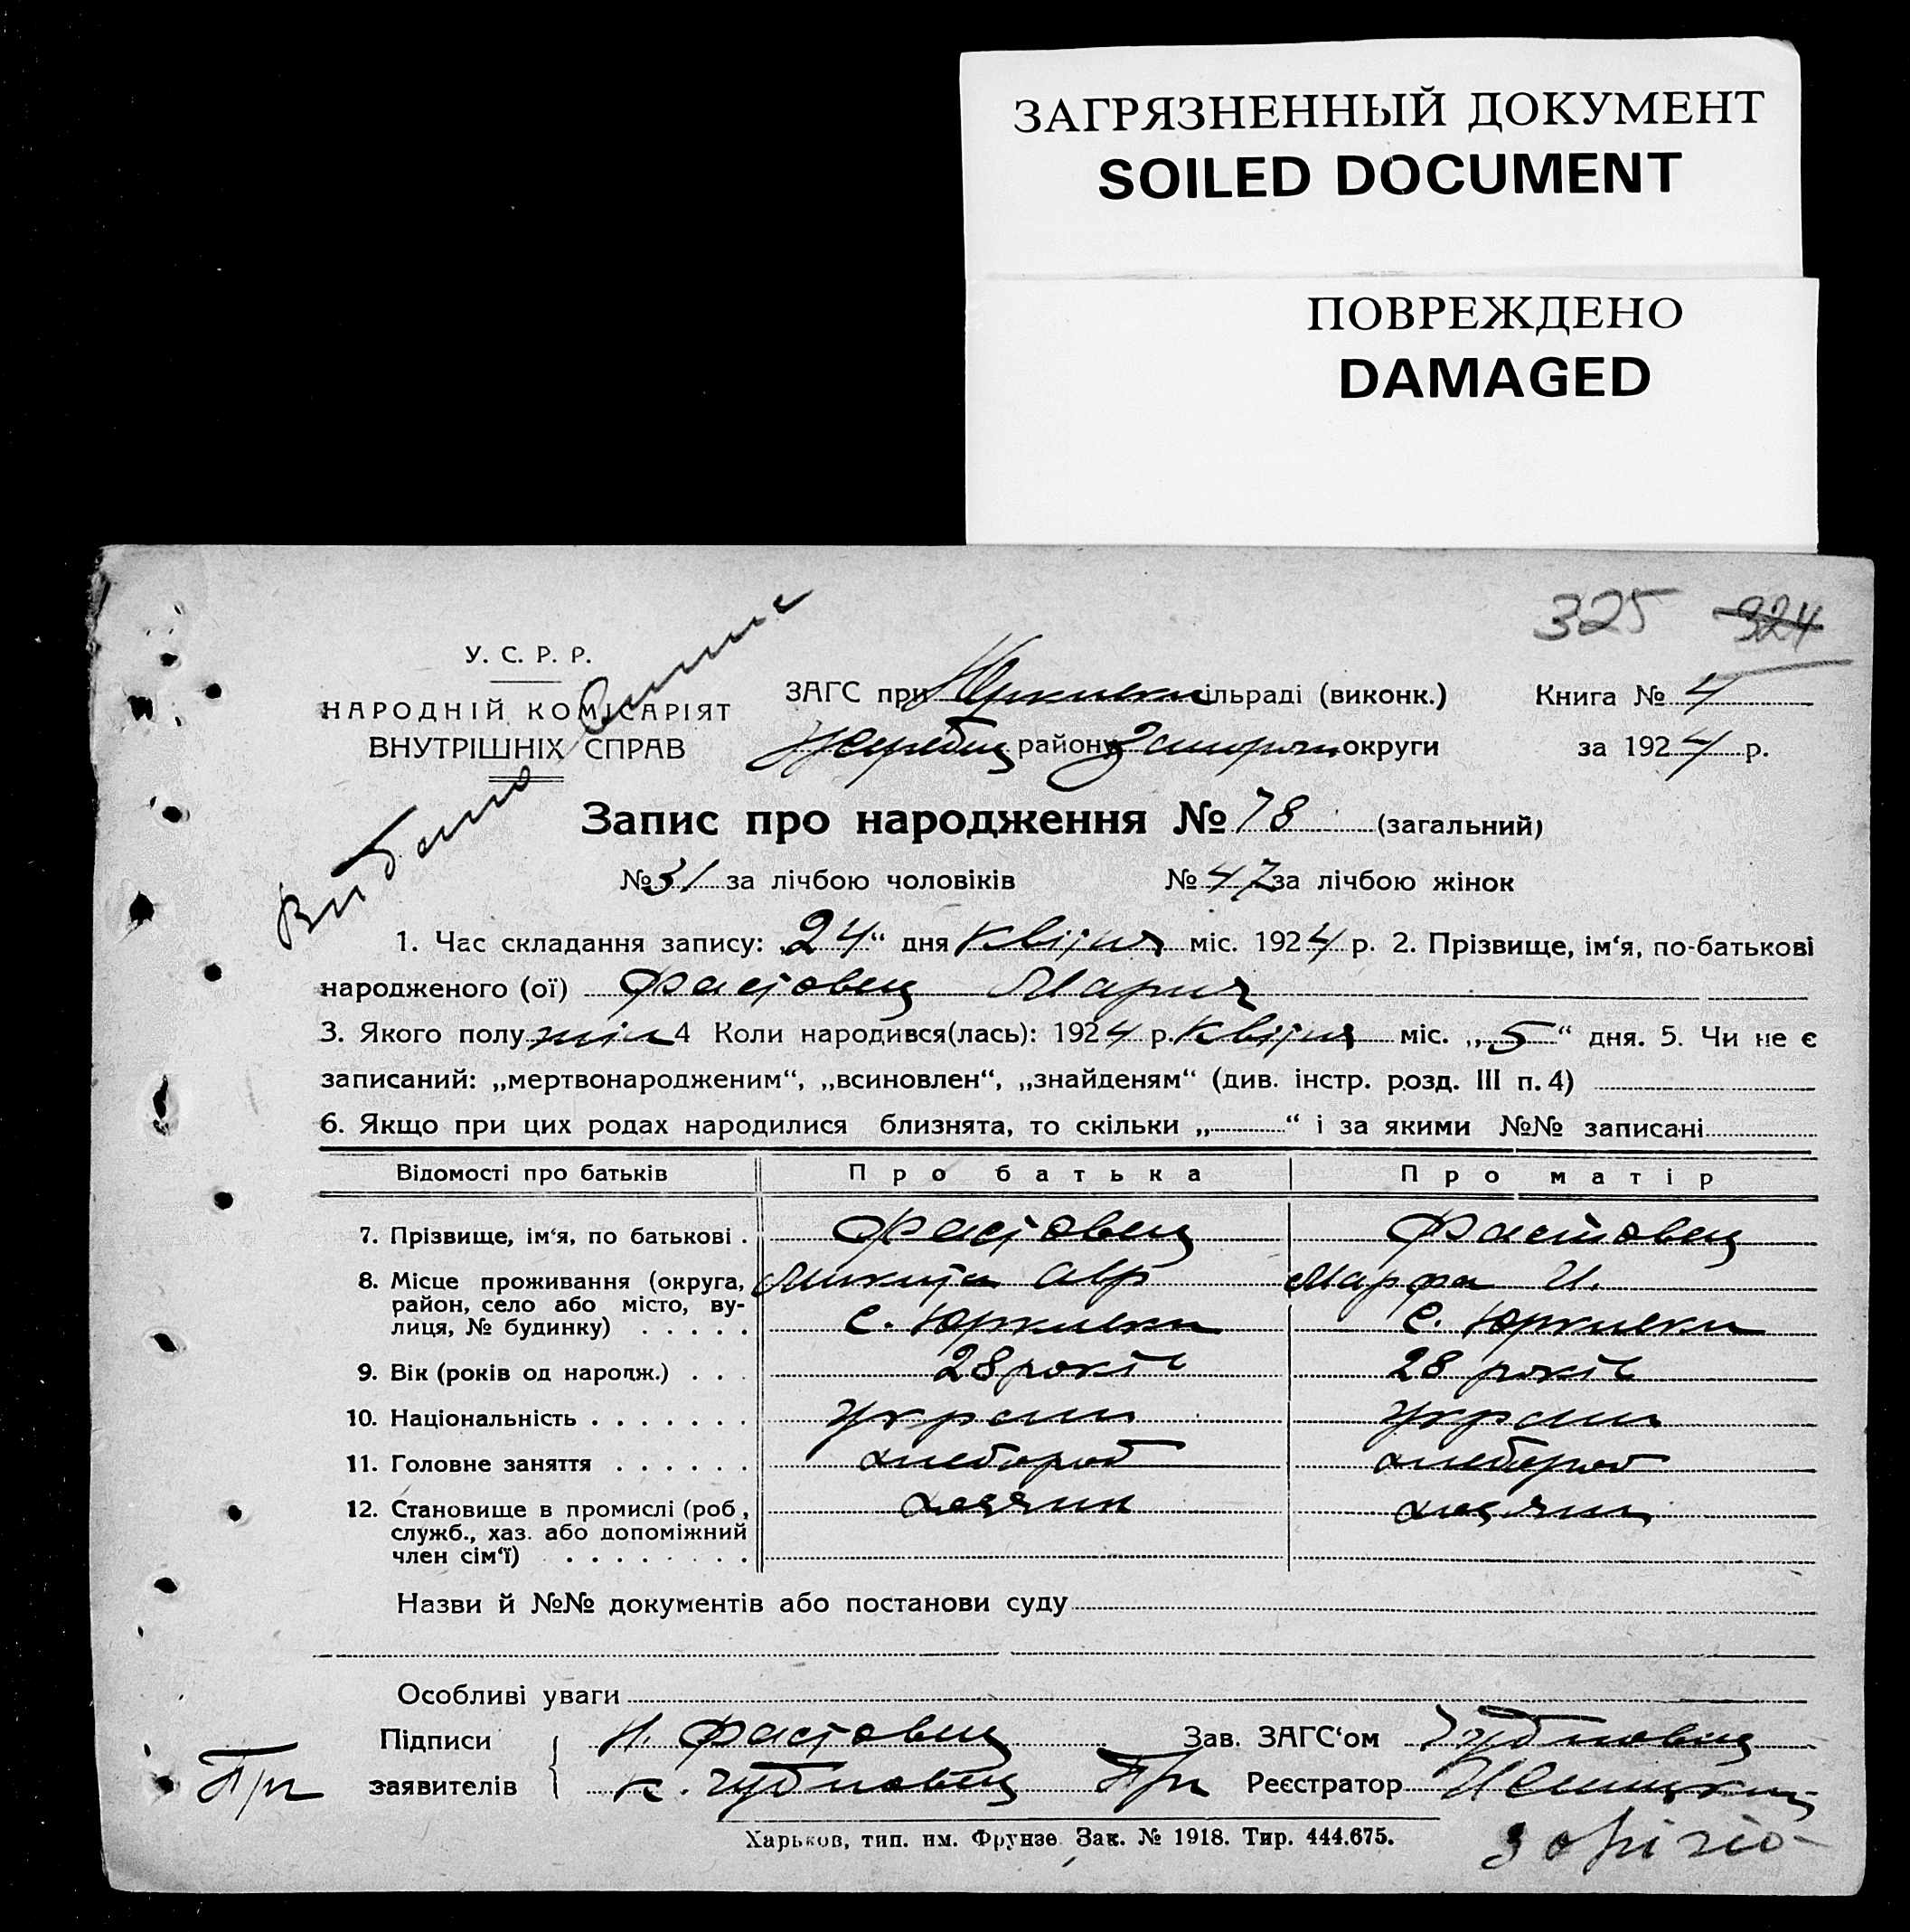 ЗАГРЯЗНЕННЫЙ ДОКУМЕНТ
SOILED DOCUMENT
ПОВРЕЖДЕНО
DAMAGED
325 324
У. С. Р. Р.
НАРОДНІЙ КОМІСАРІЯТ
ВНУТРІШНІХ СПРАВ
Видано
ЗАГС при Юркивки сільраді (виконк.) Книга № 4
Жеребец району округи за 1924 р.
Запис про народження № 78 (загальний)
№ 31 за лічбою чоловіків № 47 за лічбою жінок
1. Час складання запису: „24“ дня квітня міс. 1924 р. 2. Прізвище, ім‘я, по-батькові
народженого (ої) Фастовец Мария
3. Якого полу жін 4 Коли народився(лась): 1924 р. квітня міс. „5“ дня. 5. Чи не є
записаний: „мертвонародженим“, „всиновлен“, „знайденям“ (див. інстр. розд. III п. 4)
6. Якщо при цих родах народилися близнята, то скільки „ “ і за якими №№ записані
Відомості про батьків Про батька Про матір
7. Прізвище, ім‘я, по батькові . Фастовец Фастовец
8. Місце проживання (округа, Микита Ав Марфа И.
район, село або місто, ву-
лиця, № будинку) . . . . . с. Юркивки с. Юркивки
9. Вік (років од народж.) . . . 28 років 28 років
10. Національність . . . . . . . украин украин
11. Головне заняття . . . . . . хлебороб хлебороб
12. Становище в промислі (роб., хозяин хозяин
служб., хаз. або допоміжний
член сім‘ї) . . . . . . . .
Назви й №№ документів або постанови суду
Особливі уваги
Підписи Н. Фастовец Зав. ЗАГС‘ом
заявителів К. Реєстратор
Харьков, тип. им. Фрунзе. Зак. № 1918. Тир. 444.675.